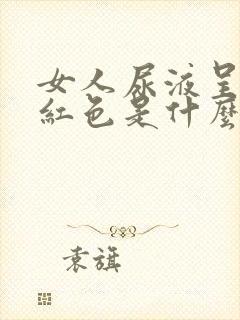 女人尿液呈
紅色是什麼
袁旗